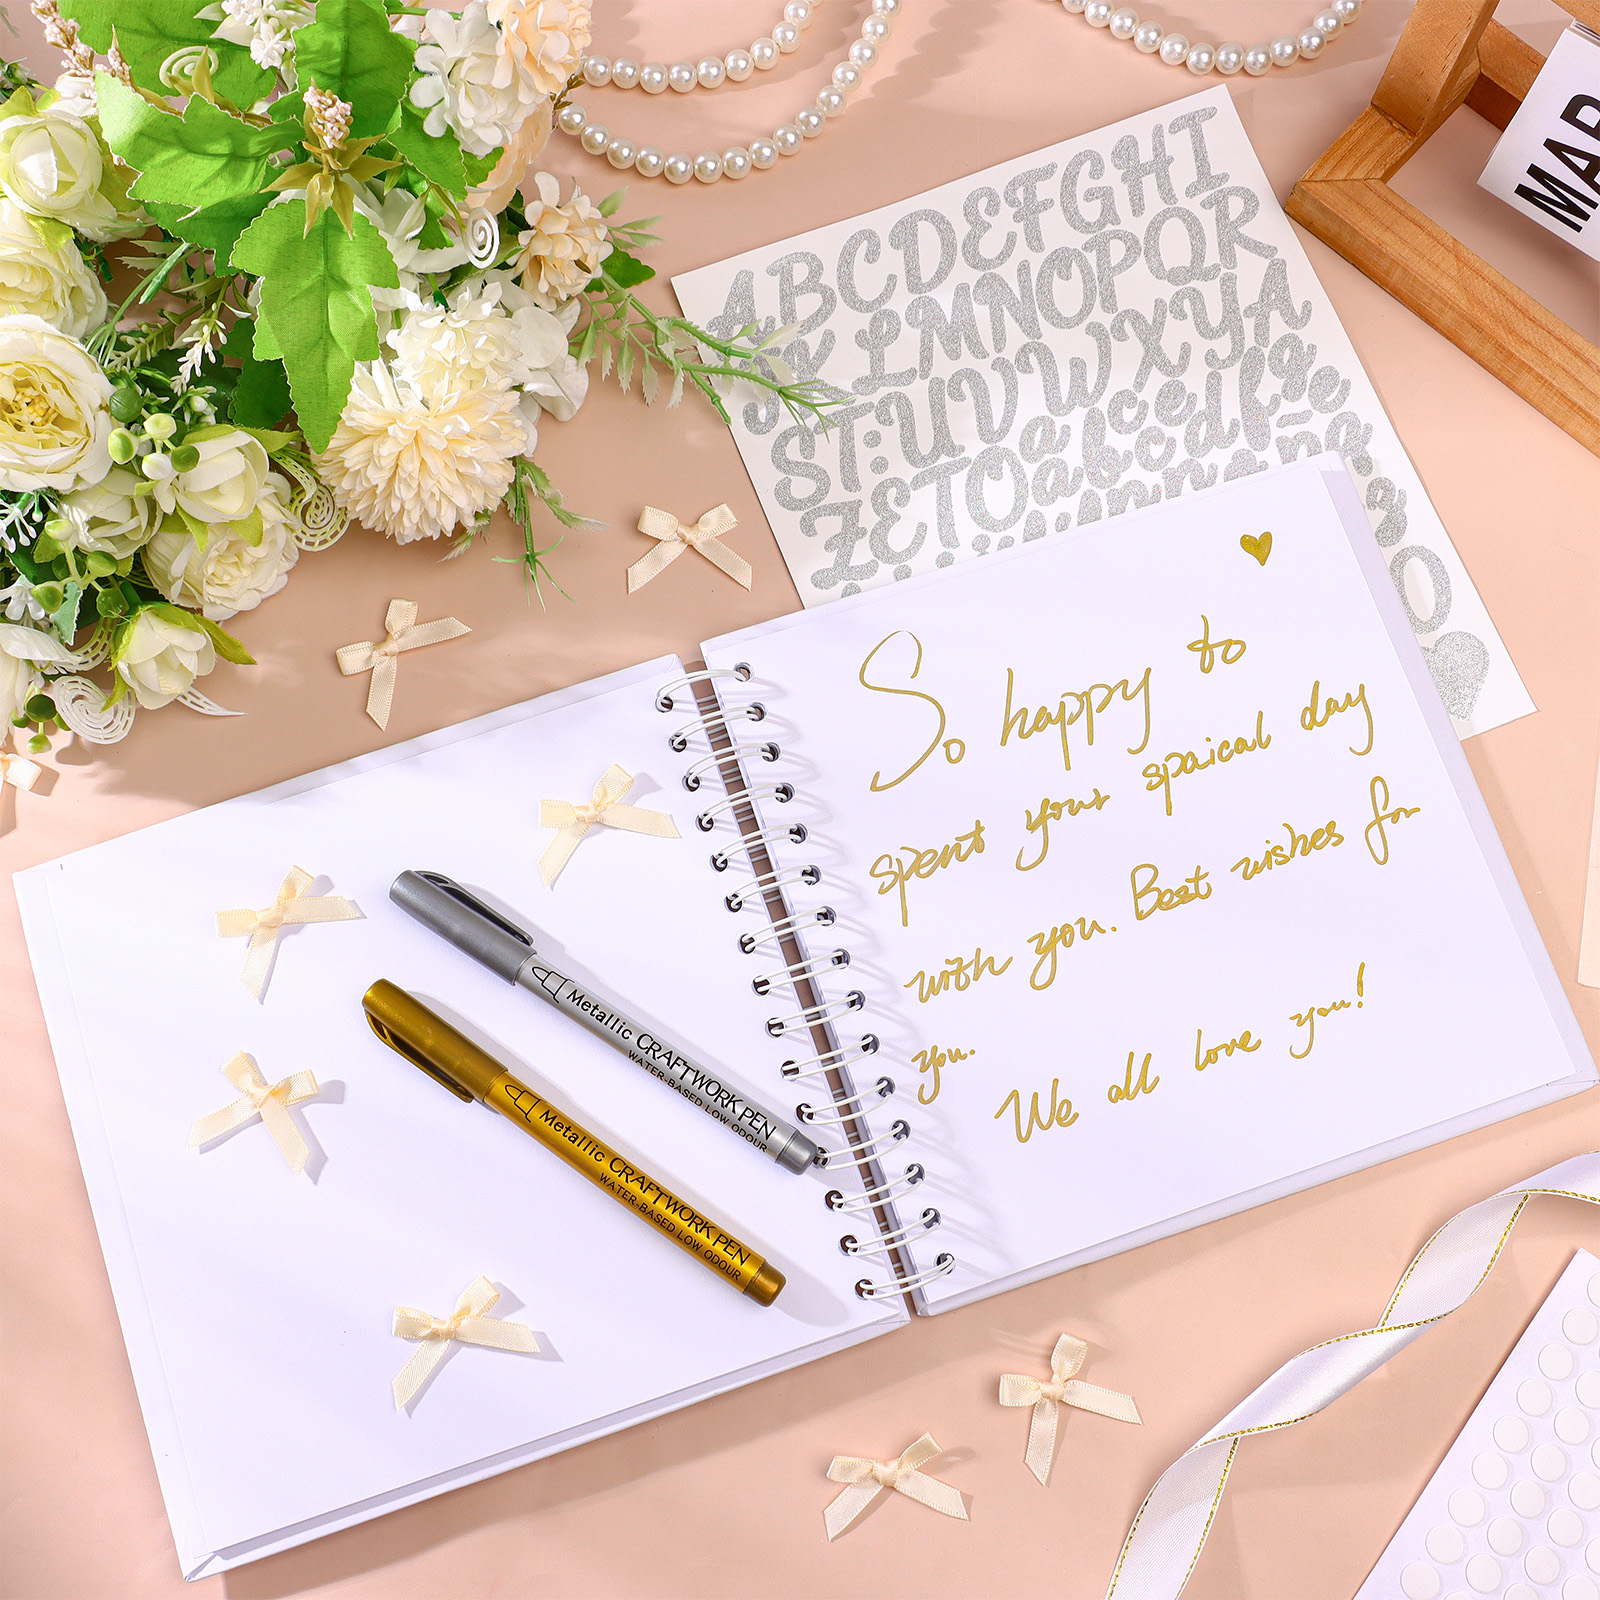 MAR
ABCDEFGHI
JKLMNOPQR
ST:UVWXYA
ZETOabcdfge
So happy to
spent your spaical day
with you. Best wishes for
you.
We all love you!
Metallic CRAFTWORK PEN
WATER-BASED LOW ODOUR
Metallic CRAFTWORK PEN
WATER-BASED LOW ODOUR